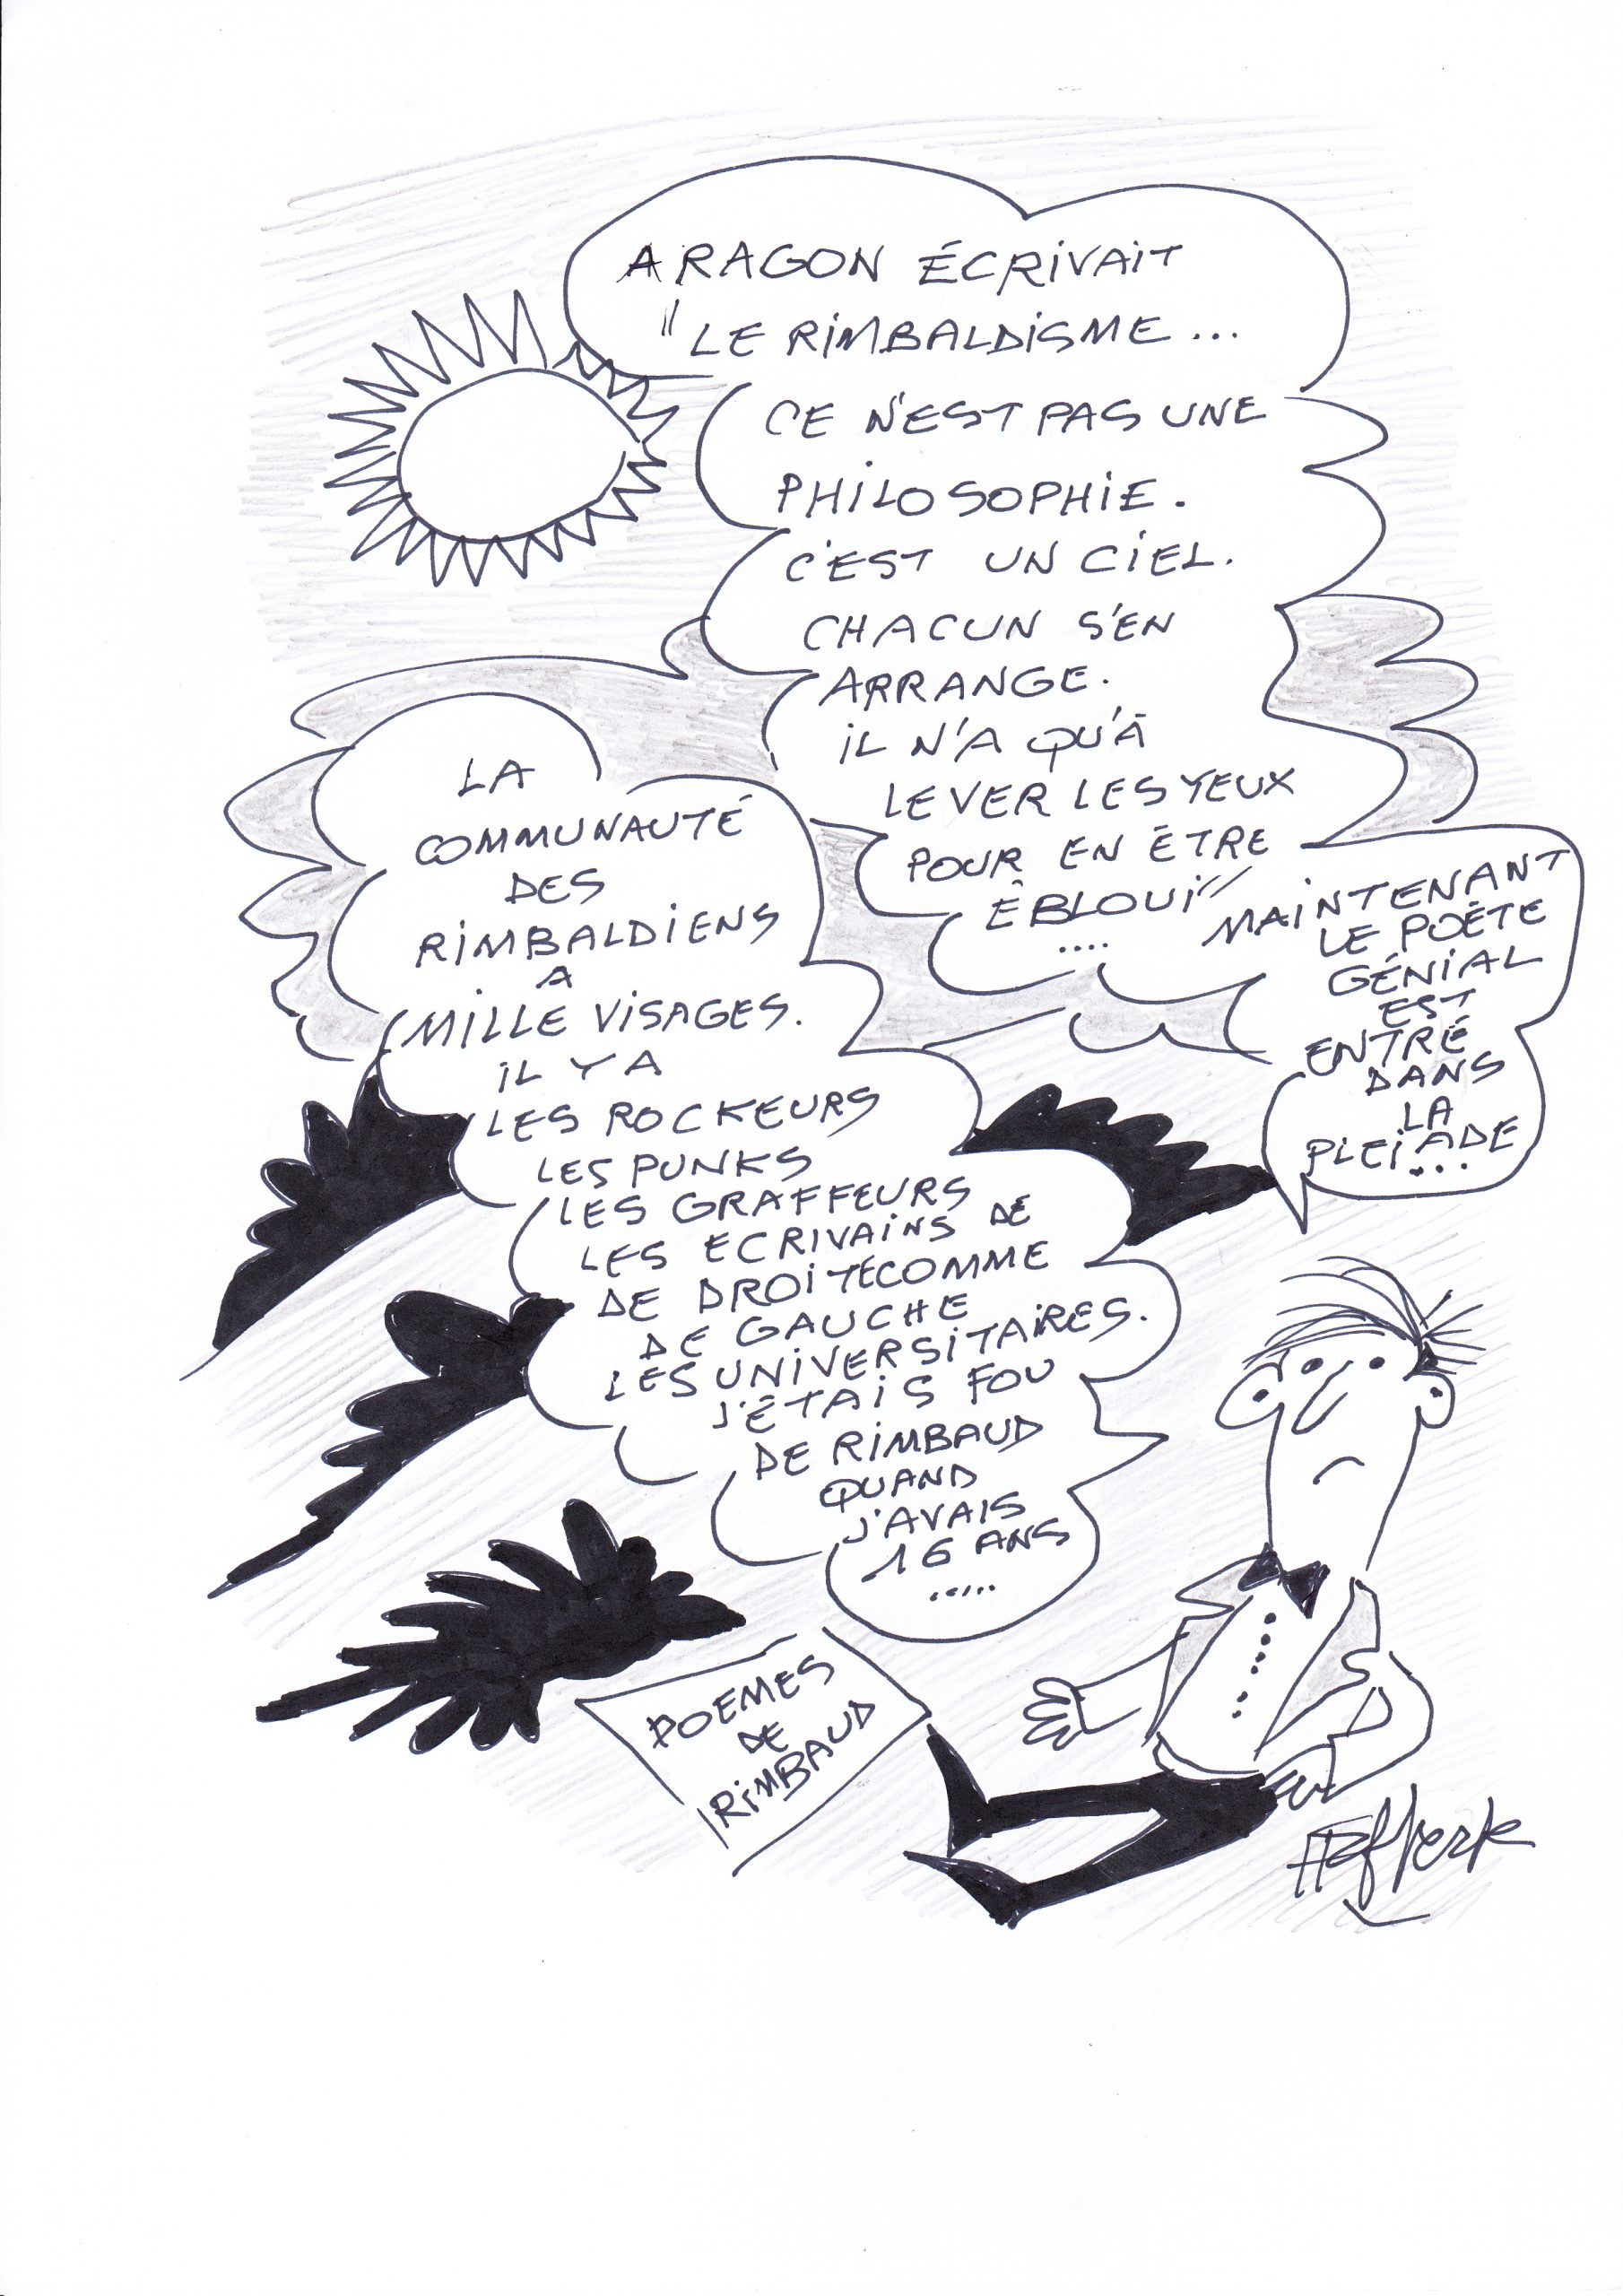 ARAGON ÉCRIVAIT
"LE RIMBALDISME...
CE N'EST PAS UNE
PHILOSOPHIE.
C'EST UN CIEL.
CHACUN S'EN
ARRANGE.
IL N'A QU'À
LEVER LES YEUX
POUR EN ÊTRE
ÉBLOUI"
....
MAINTENANT
LE POÈTE
GÉNIAL
EST
ENTRÉ
DANS
LA
PLEIADE
...
LA
COMMUNAUTÉ
DES
RIMBALDIENS
A
MILLE VISAGES.
IL Y A
LES ROCKEURS
LES PUNKS
LES GRAFFEURS
LES ECRIVAINS DE
DE DROITE COMME
DE GAUCHE
LES UNIVERSITAIRES.
J'ÉTAIS FOU
DE RIMBAUD
QUAND
J'AVAIS
16 ANS
.....
POEMES
DE
RIMBAUD